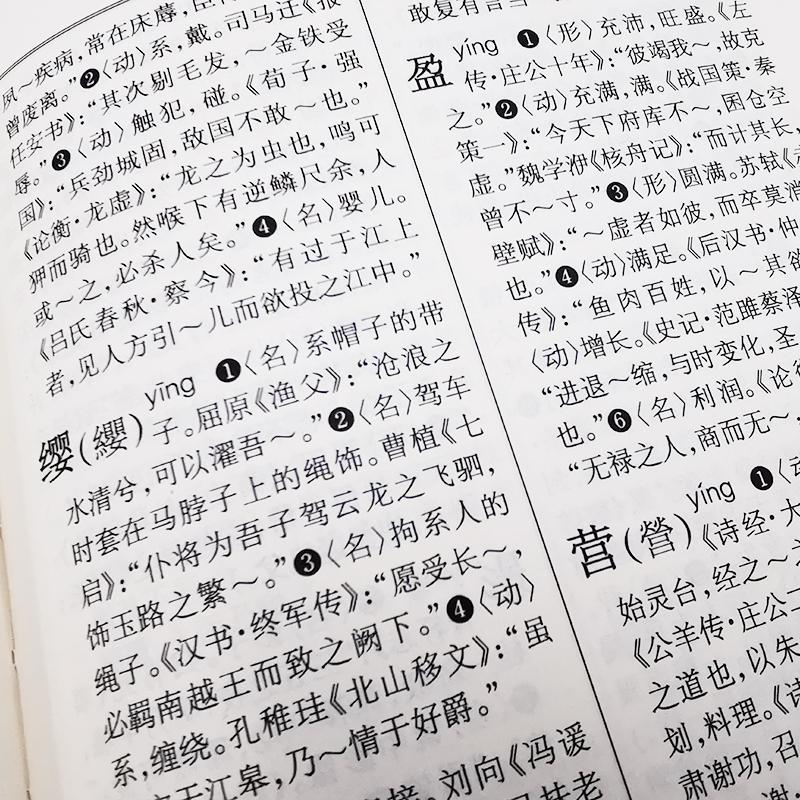 夙～疾病,常在床蓐,
曾废离。”❷〈动〉系,戴。司马迁《报
任安书》:“其次剔毛发,～金铁受
辱。”❸〈动〉触犯,碰。《荀子·强
国》:“兵劲城固,敌国不敢～也。”
《论衡·龙虚》:“龙之为虫也,鸣可
狎而骑也。然喉下有逆鳞尺余,人
或～之,必杀人矣。”❹〈名〉婴儿。
《吕氏春秋·察今》:“有过于江上
者,见人方引～儿而欲投之江中。”
缨(纓) yīng ❶〈名〉系帽子的带
子。屈原《渔父》:“沧浪之
水清兮,可以濯吾～。”❷〈名〉驾车
时套在马脖子上的绳饰。曹植《七
启》:“仆将为吾子驾云龙之飞驷,
饰玉路之繁～。”❸〈名〉拘系人的
绳子。《汉书·终军传》:“愿受长～,
必羁南越王而致之阙下。”❹〈动〉
系,缠绕。孔稚珪《北山移文》:“虽
于江皋,乃～情于好爵。”
刘向《冯谖
扶老
敢复有言
盈 yíng ❶〈形〉充沛,旺盛。《左
传·庄公十年》:“彼竭我～,故克
之。”❷〈动〉充满,满。《战国策·秦
策一》:“今天下府库不～,囷仓空
虚。”魏学洢《核舟记》:“而计其长,
曾不～寸。”❸〈形〉圆满。苏轼《
壁赋》:“～虚者如彼,而卒莫消
也。”❹〈动〉满足。《后汉书·仲
传》:“鱼肉百姓,以～其欲
〈动〉增长。《史记·范雎蔡泽
“进退～缩,与时变化,圣
也。”❻〈名〉利润。《论衡
“无禄之人,商而无～,
营(營) yíng ❶〈动
《诗经·大
始灵台,经之～之
《公羊传·庄公二
之道也,以朱
划,料理。《诗
肃谢功,召